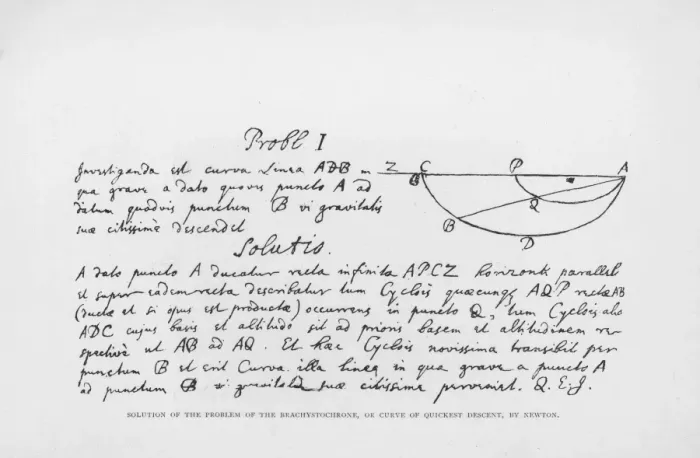 Probl I
Investiganda est curva Linea ADB in
qua grave a dato quovis puncto A ad
datum quodvis punctum B vi gravitatis
suæ citissimè descendet
Solutio.
A dato puncto A ducatur recta infinita APCZ horizonti parallela
et super eadem recta describatur tum Cyclois quæcunq AQP rectæ AB
(ducta et si opus est productæ) occurrens in puncto Q, tum Cyclois alia
ADC cujus basis et altitudo sit ad prioris basem et altitudinem re-
spective ut AB ad AQ. Et hæc Cyclois novissima transibit per
punctum B et erit Curva illa linea in qua grave a puncto A
ad punctum B vi gravitatis suæ citissime perveniet. Q. E. I.
Z C P A
Q
B
D
SOLUTION OF THE PROBLEM OF THE BRACHYSTOCHRONE, OR CURVE OF QUICKEST DESCENT, BY NEWTON.